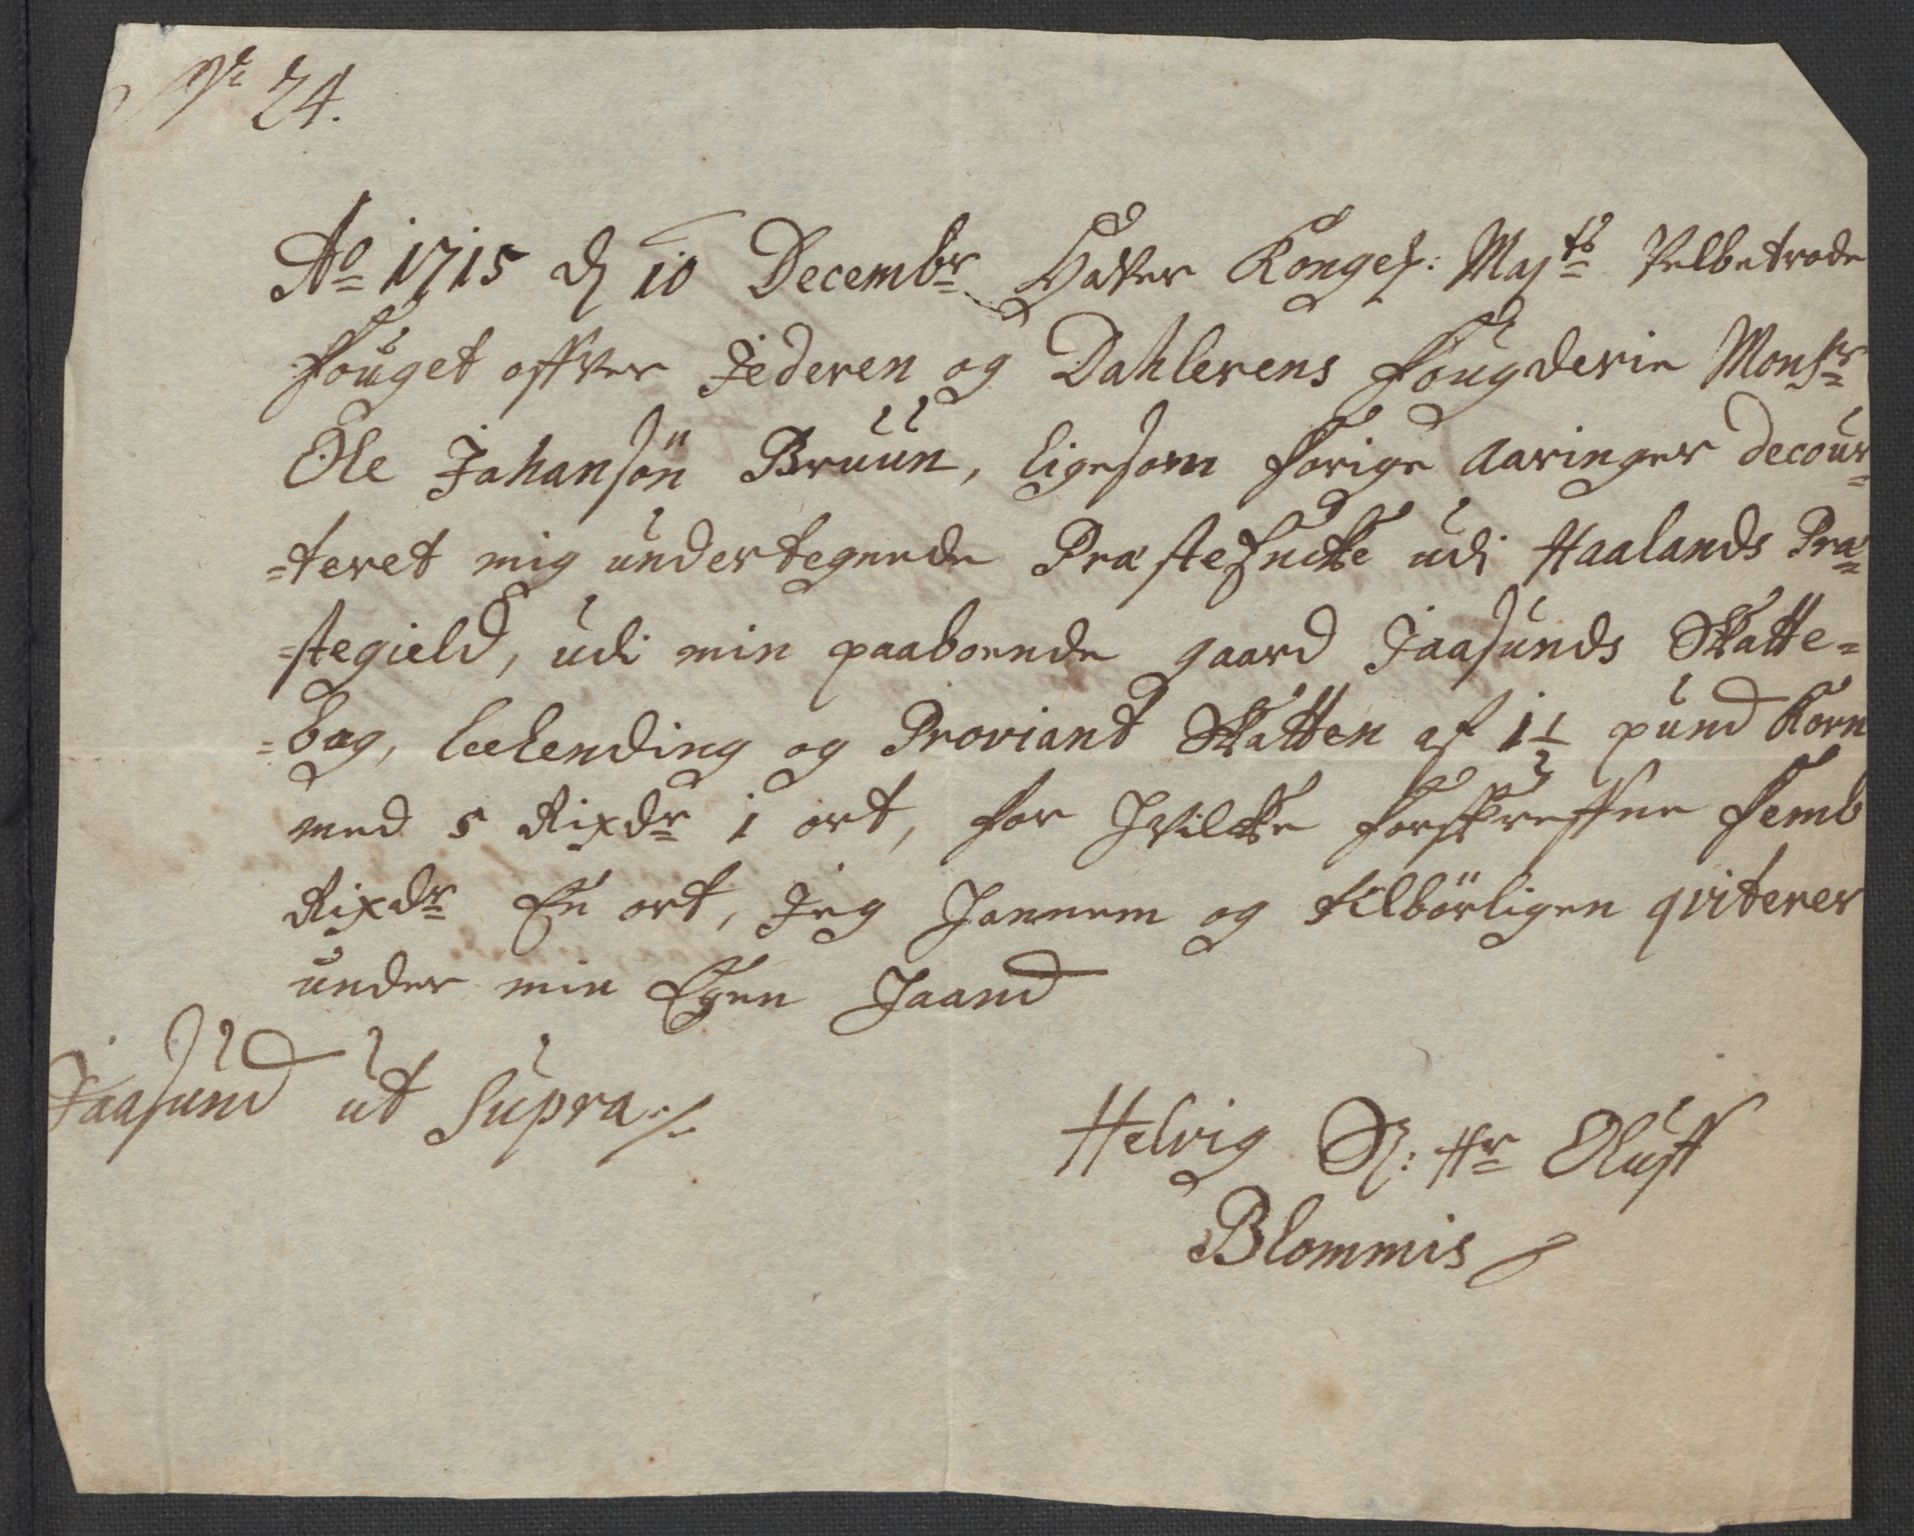 No 24.
Ao 1715 d 10 Decembr Haver Kongel: Majts Velbetrode
fouget offver Jederen og Dahlerens fougderie Monsr
Ole Johansøn Bruun, ligesom forige aaringer decour=
=teret mig undertegnede Præsteencke udi Haalands Præ=
=stegield, udi min paaboende gaard Jaasunds Skatte=
=bog, leelending og Proviant Skatten af 1½ pund Korn
med 5 Rixdr 1 ort, for hvilcke forskreffne femb
Rixdr En ort, Jeg hannem og tilbörligen qviterer
under min Egen Haand
Jaasund ut Supra ./.
Helvig Sl: Hr Oluff
Blommis